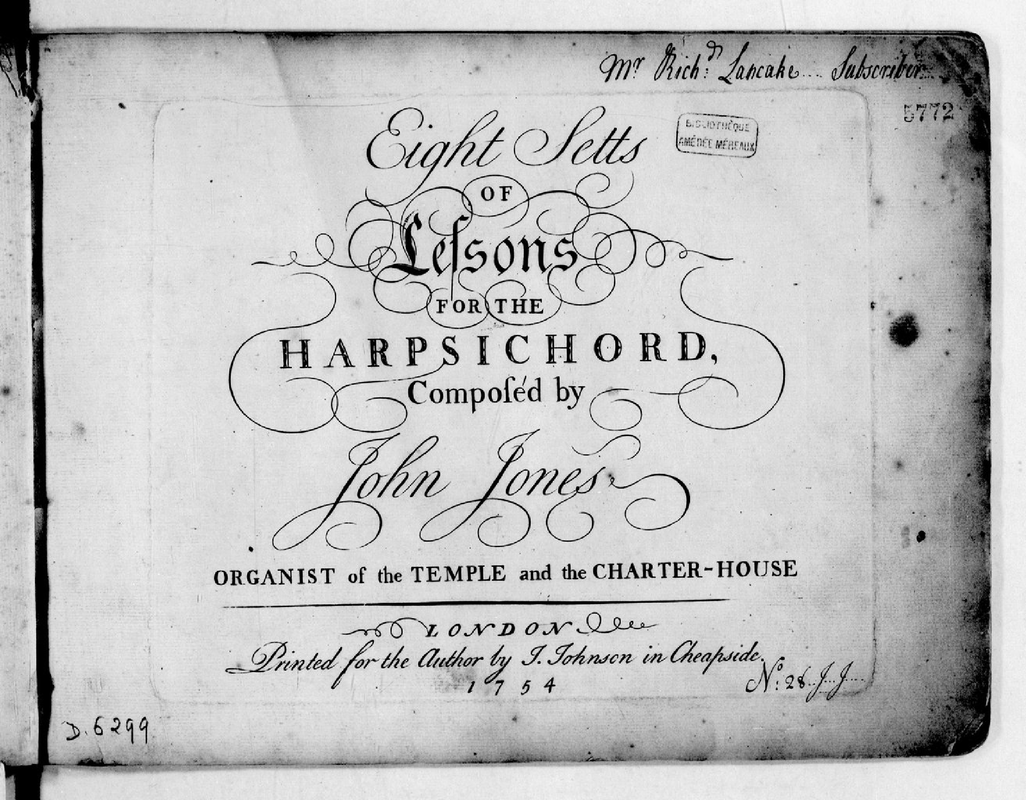 Mr Rich:d Lancake.... Subscriber
5772
BIBLIOTHÈQUE
AMÉDÉE MÉREAUX
Eight Setts
OF
Leſsons
FOR THE
HARPSICHORD,
Compoſ'd by
John Jones
ORGANIST of the TEMPLE and the CHARTER-HOUSE
LONDON
Printed for the Author by J. Johnson in Cheapside.
1754
No: 28. J. J....
D. 6299